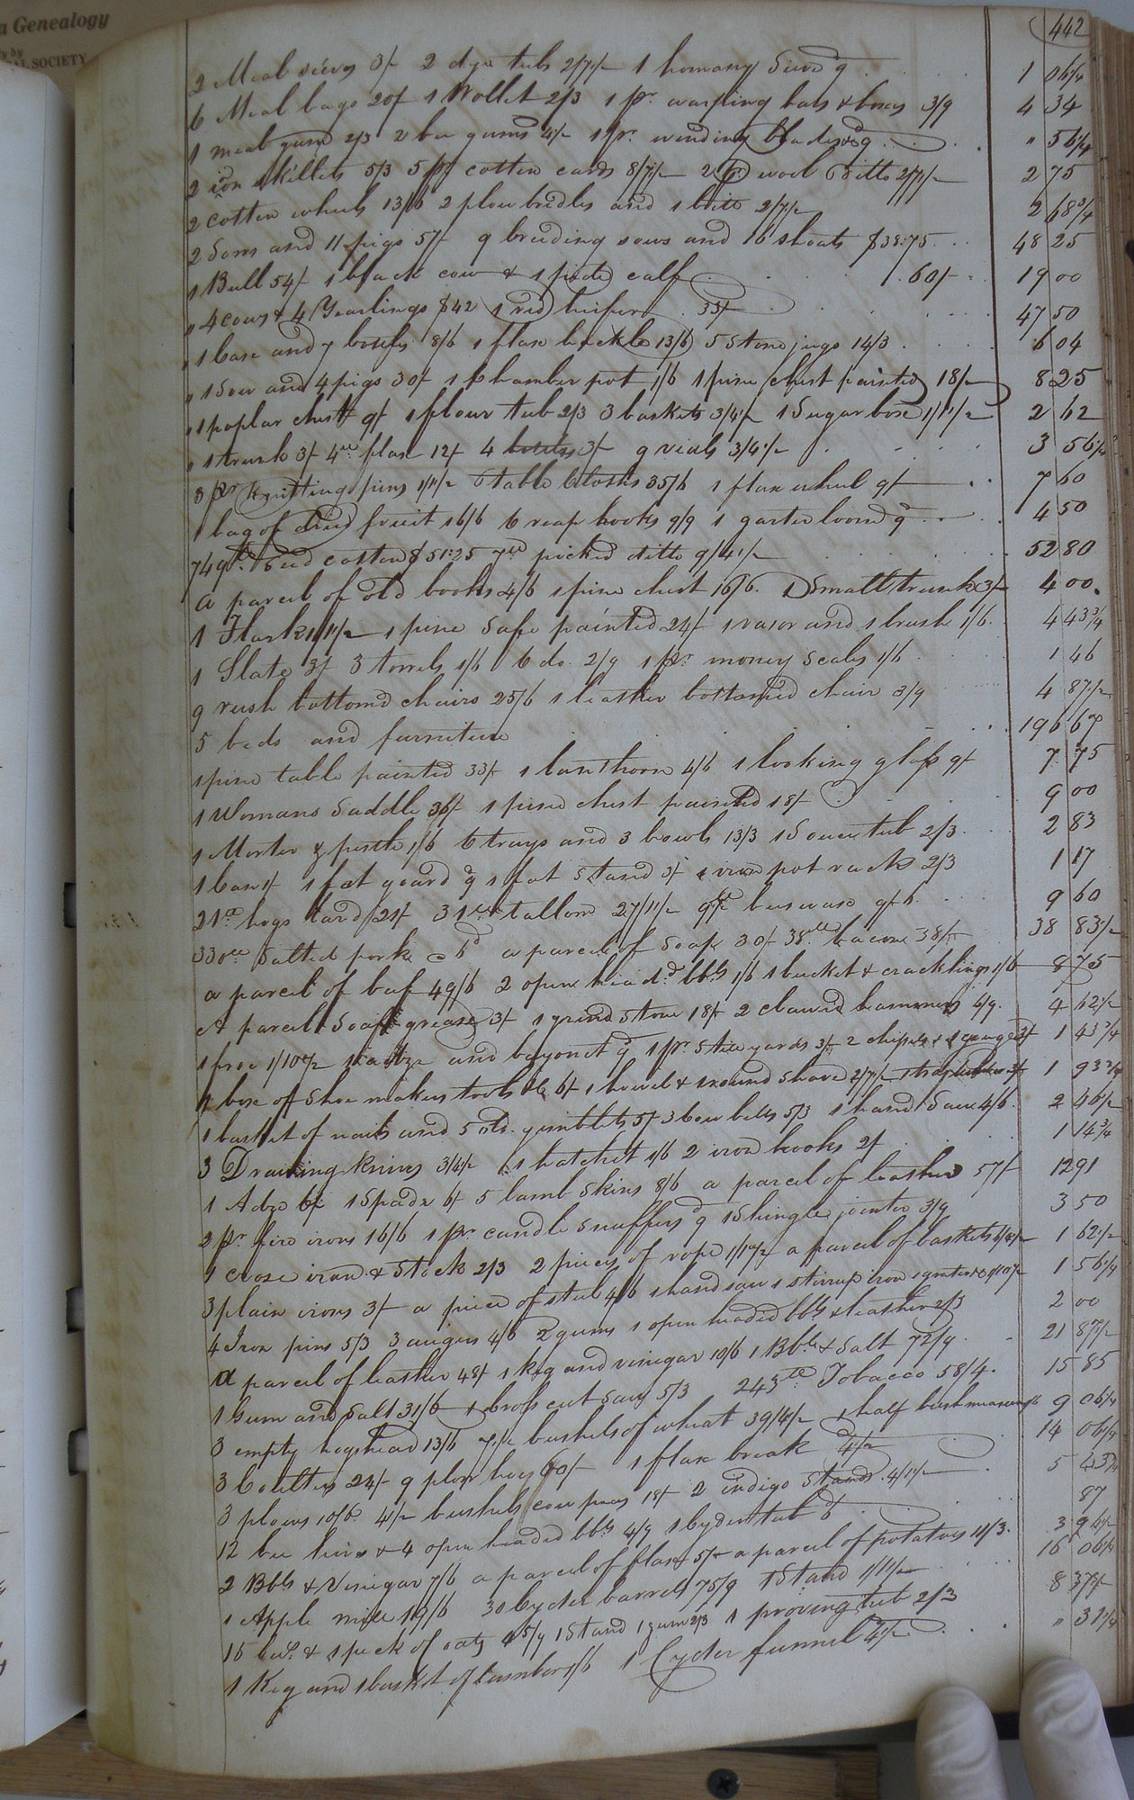 a Genealogy
SOCIETY
442
2 Meal sieves 3/ 2 dye tubs 2/7½ 1 homany Sieve 9 1 06¼
6 Meal bags 20/ 1 Wollet 2/3 1 pr. warping bars & boxes 3/9 4 34
1 meal gum 2/3 2 bee gums 4/ 1 pr. winding blades &c 9 " 56¼
2 iron skillets 5/3 5 pr cotten cards 8/7½ 2 pr wool Ditto 2/7½ 2 75
2 cotten wheels 13/6 2 plow bridles and 1 bitt 2/7½ 2 68¾
2 Sows and 11 pigs 57/ 9 breeding sows and 16 shoats $38:75 48 25
1 Bull 54/ 1 black cow & 1 pided calf 60/ 19 00
4 cows & 4 Yearlings $42 1 red heifer 33/ 47 50
1 case and 7 bottles 8/6 1 flax hackle 13/6 5 Stone jugs 14/3 6 04
1 Sow and 4 pigs 30/ 1 Chamber pot 1/6 1 pine chest painted 18/ 8 25
1 poplar chest 9/ 1 flour tub 2/3 3 baskets 3/4½ 1 Sugar box 1/1½ 2 62
1 trunk 3/ 4 flax 12/ 4 bottles 3/ 9 vials 3/4½ 3 56¼
8 pr Knitting pins 1/1½ 6 table Cloths 35/6 1 flax wheel 9/ 7 60
1 bag of dried fruit 16/6 6 reap hooks 9/9 1 garter loom 9 4 50
749 lb Seed cotten $51:25 7 lb picked ditto 9/4½ 52 80
a parcel of old books 4/6 1 pine chest 16/6 1 Small trunk 3/ 4 00
1 Flask 1/1½ 1 pine Safe painted 24/ 1 rasor and 1 brush 1/6 4 43¾
1 Slate 3/ 3 towels 1/6 6 do. 2/9 1 pr. money Scales 1/6 1 46
9 rush bottomd chairs 25/6 1 leather bottomed chair 3/9 4 87½
5 beds and furniture 196 67
1 pine table painted 33/ 1 lanthorn 4/6 1 looking glass 9/ 7 75
1 Womans Saddle 36/ 1 pine chest painted 18/ 9 00
1 Morter & pestle 1/6 6 trays and 3 bowls 13/3 1 Souce tub 2/3 2 83
1 Can 1/ 1 fat gourd 9 1 fat Stand 3/ 1 iron pot rack 2/3 1 17
21 lb hogs lard 21/ 31 lb tallow 27/11½ 9 lb beeswax 9/6 9 60
330 lb Salted pork @ 6d a parcel of Soap 30/ 38 lb bacon 38/ 38 83½
a parcel of beef 49/6 2 open head. bbls 1/6 1 bucket & cracklings 1/6 8 75
A parcel Soap grease 3/ 1 grind stone 18/ 2 clawed hammers 6/9 4 62½
1 froe 1/10½ 1 and bayonet 9 1 pr. Steelyards 3/ 2 chisels & 1 gouge 3/ 1 43¾
1 box of Shoe makers tools &c 6/ 1 howel & 1 round Shave 2/7½ 1 93¾
1 basket of nails and 5 old. gimblets 5/ 3 cow bells 5/3 1 hand Saw 4/6 2 46½
3 Drawing knives 3/4½ 1 hatchet 1/6 2 iron hooks 2/ 1 14¾
1 Adze 6/ 1 Spade 6/ 5 lamb Skins 8/6 a parcel of leather 57/ 12 91
2 pr. fire irons 16/6 1 pr. candle snuffers 9 1 Shingle jointer 3/9 3 50
1 croze iron & Stock 2/3 2 pieces of rope 1/10½ a parcel of baskets 1 62½
3 plain irons 3/ a piece of steel 4/6 1 hand saw 1 stirrup iron 1 56¼
4 Iron pins 5/3 3 augurs 4/6 2 gums 1 open headed bbl & leather 2/3 2 00
a parcel of leather 48/ 1 keg and vinegar 10/6 1 Bbl & Salt 72/9 21 87½
1 Gum and Salt 31/6 1 cross cut Saw 5/3 243 lb Tobacco 58/4 15 85
3 empty hogshead 13/6 7½ bushels of wheat 39/4½ 1 half bush measure 9 06¼
3 Coulters 24/ 9 plow hoes 60/ 1 flax break 14 06¼
3 plows 10/6 4½ bushels cow peas 18/ 2 indigo Stands 4/1½ 5
12 bee hives & 4 open headed bbls 4/9 1 Cyder tub 6 87
2 Bbls & Vinegar 7/6 a parcel of flax 5/ a parcel of potatoes 11/3 3
1 Apple mill 19/6 30 Cyder barrels 75/9 1 Stand 1/1½ 16 06¼
15 bus. & 1 peck of oats 45/9 1 Stand 1 gum 2/3 1 proving tub 2/3 8 37½
1 Keg and 1 basket of 1/6 1 Cyder funnel 4½ " 31¼